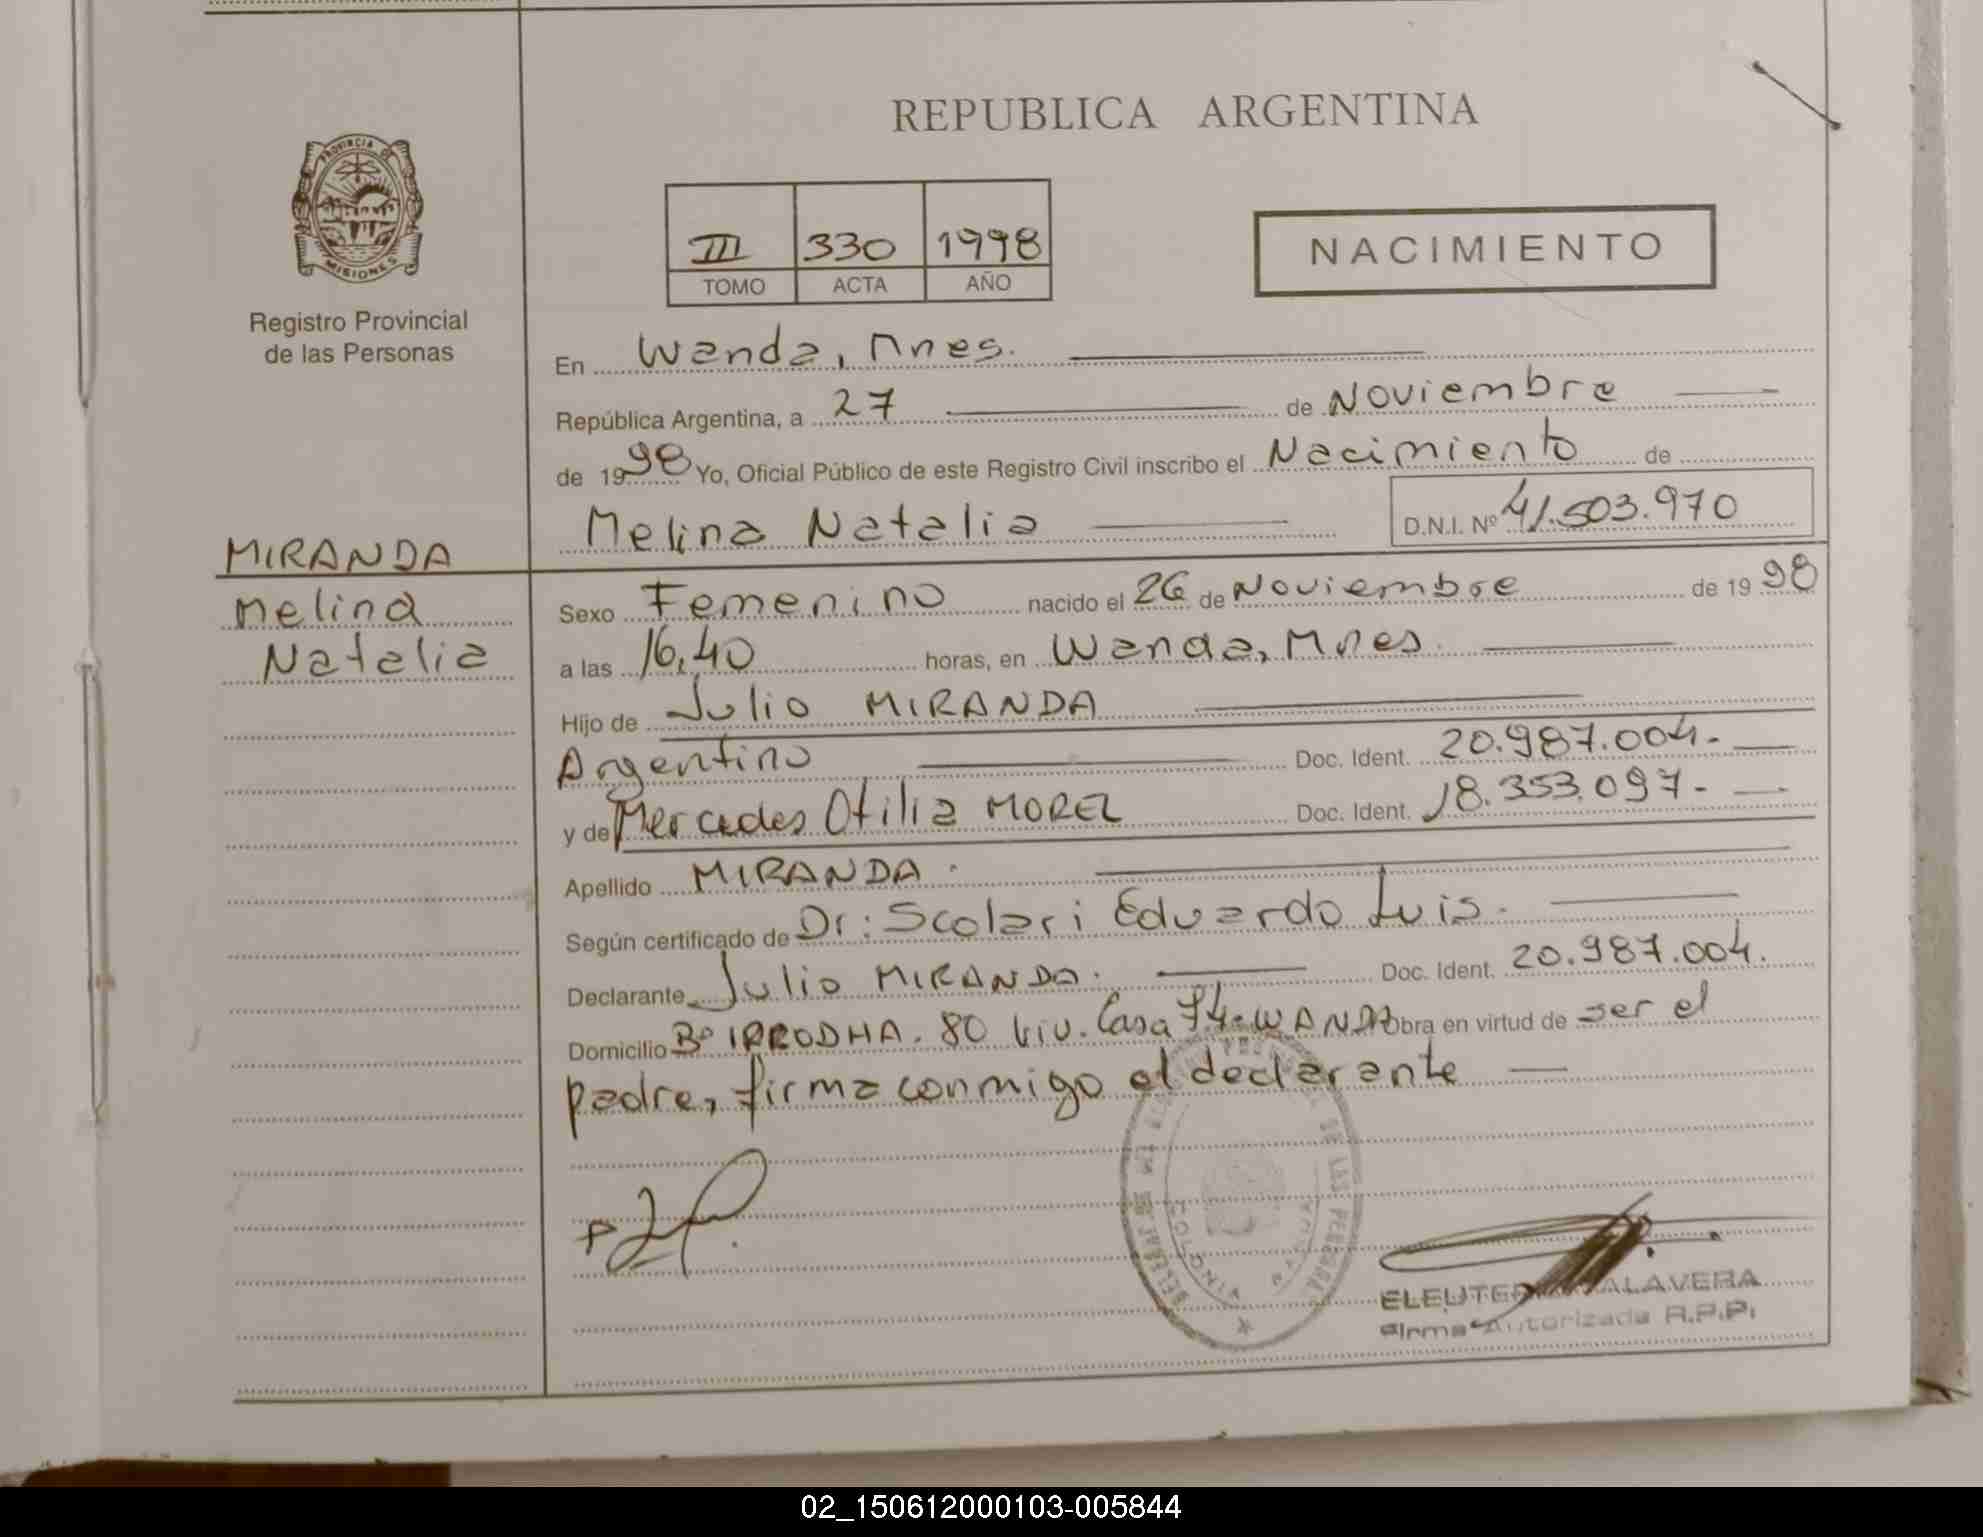 REPUBLICA ARGENTINA
PROVINCIA DE
MISIONES
Registro Provincial
de las Personas
III 330 1998
TOMO ACTA AÑO
NACIMIENTO
En Wanda, Mnes.
República Argentina, a 27 de Noviembre
de 1998 Yo, Oficial Público de este Registro Civil inscribo el Nacimiento de
Melina Natalia D.N.I. Nº 41.503.970
MIRANDA
Melina
Natalia
Sexo Femenino nacido el 26 de Noviembre de 1998
a las 16,40 horas, en Wanda, Mnes.
Hijo de Julio MIRANDA
Argentino Doc. Ident. 20.987.004.-
y de Mercedes Otilia MOREL Doc. Ident. 18.353.097.-
Apellido MIRANDA.
Según certificado de Dr: Scolari Eduardo Luis.
Declarante Julio MIRANDA. Doc. Ident. 20.987.004.
Domicilio Bº IPRODHA. 80 Viv. Casa 74-WANDA Obra en virtud de ser el
padre, firma conmigo el declarante
DE LAS PERSONAS
ELEUTERIO TALAVERA
Firma Autorizada R.P.P.
02_150612000103-005844